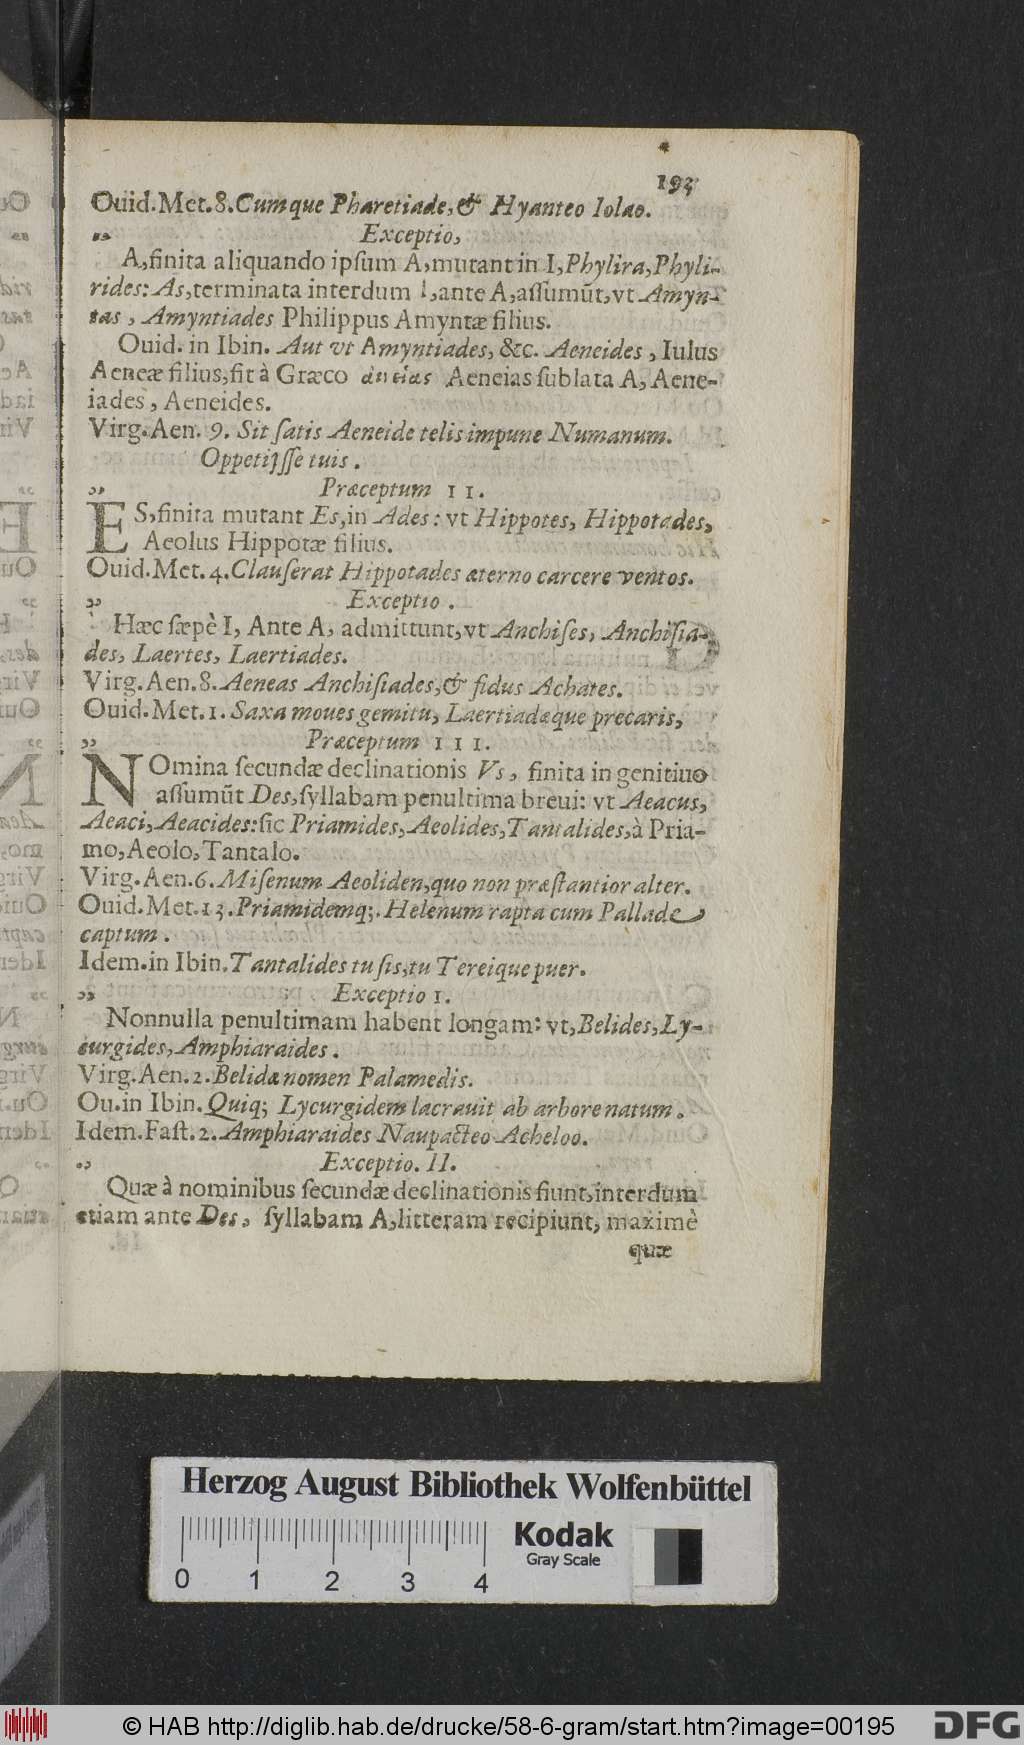 193
Ouid.Met.8.Cumque Pharetiade,& Hyanteo Iolao.
„ Exceptio,
A,finita aliquando ipsum A,mutant in I,Phylira,Phyli-
rides: As,terminata interdum I,ante A,aſſumūt,vt Amyn-
tas, Amyntiades Philippus Amyntæ filius.
Ouid. in Ibin. Aut vt Amyntiades, &c. Aeneides, Iulus
Aeneæ filius,fit à Græco Aeneias ſublata A, Aene-
iades, Aeneides.
Virg.Aen. 9. Sit ſatis Aeneide telis impune Numanum.
Oppetijſſe tuis.
Præceptum II.
„ ES,finita mutant Es,in Ades: vt Hippotes, Hippotades,
Aeolus Hippotæ filius.
Ouid.Met.4.Clauſerat Hippotades æterno carcere ventos.
„ Exceptio.
Hæc ſæpè I, Ante A, admittunt,vt Anchiſes, Anchiſia-
des, Laertes, Laertiades.
Virg.Aen.8.Aeneas Anchiſiades,& fidus Achates.
Ouid.Met.1.Saxa moues gemitu, Laertiadæque precaris,
„ Præceptum III.
NOmina ſecundæ declinationis Vs, finita in genitiuo
aſſumūt Des,ſyllabam penultima breui: vt Aeacus,
Aeaci,Aeacides:ſic Priamides,Aeolides,Tantalides,à Pria-
mo,Aeolo,Tantalo.
Virg.Aen.6.Miſenum Aeoliden,quo non præſtantior alter.
Ouid.Met.13.Priamidemq;. Helenum rapta cum Pallade
captum.
Idem.in Ibin.Tantalides tu ſis,tu Tereique puer.
„ Exceptio 1.
Nonnulla penultimam habent longam: vt,Belides,Ly-
curgides,Amphiaraides.
Virg.Aen.2.Belidæ nomen Palamedis.
Ou.in Ibin.Quiq; Lycurgidem lacrauit ab arbore natum.
Idem.Faſt.2.Amphiaraides Naupacteo Acheloo.
„ Exceptio. II.
Quæ à nominibus ſecundæ declinationis fiunt,interdum
etiam ante Des, ſyllabam A,litteram recipiunt, maximè
quæ
Herzog August Bibliothek Wolfenbüttel
Kodak
Gray Scale
0 1 2 3 4
© HAB http://diglib.hab.de/drucke/58-6-gram/start.htm?image=00195
DFG